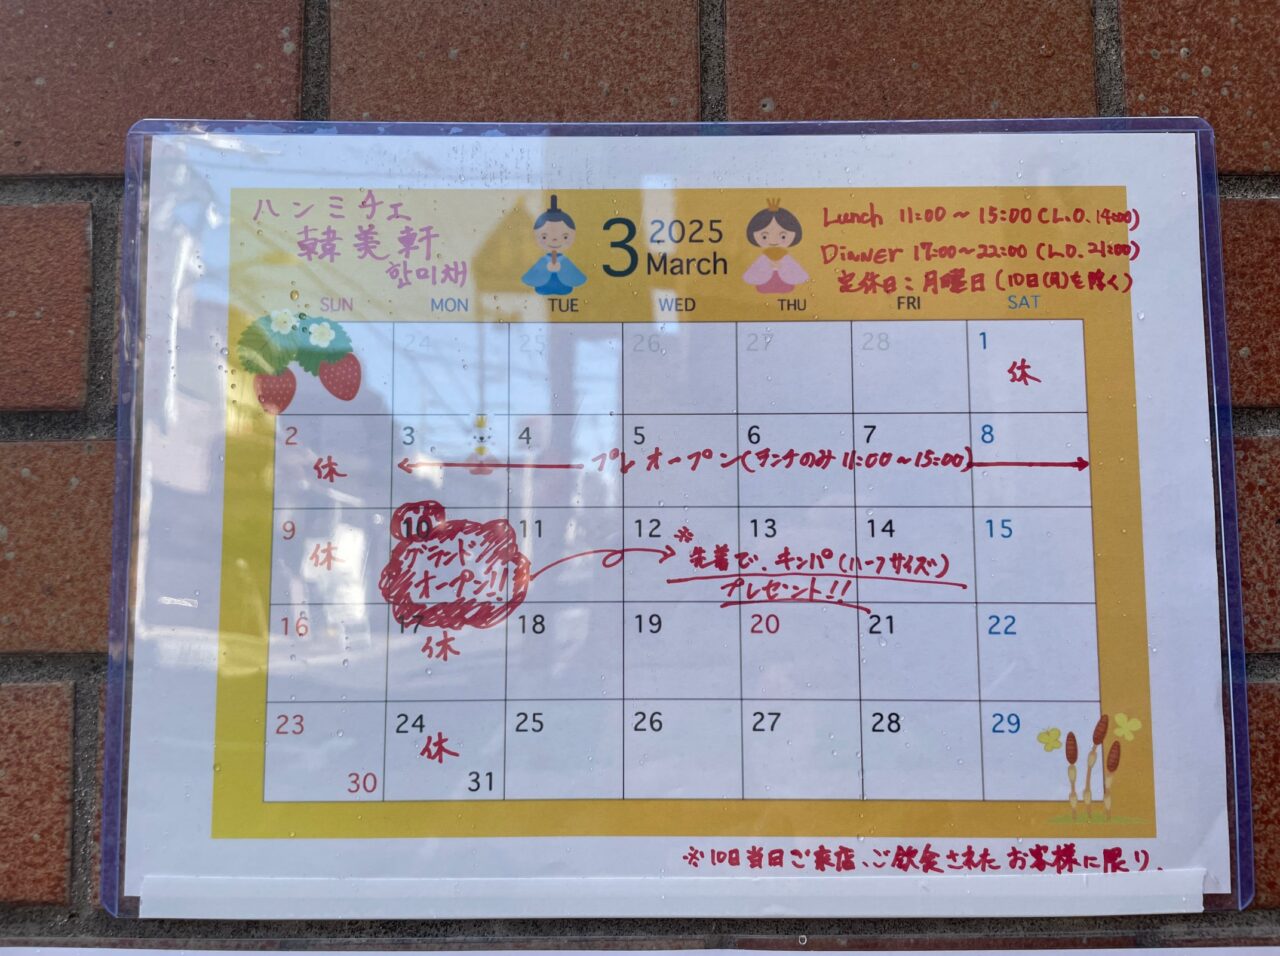 ハンミチェ
韓美軒
한미채
3
2025
March
Lunch 11:00〜15:00(L.O.14:00)
Dinner 17:00〜22:00(L.O.21:00)
定休日:月曜日(10日(月)を除く)
SUN MON TUE WED THU FRI SAT
24 25 26 27 28 1
休
2 3 4 5 6 7 8
休 プレオープン(ランチのみ11:00〜15:00)
9 10 11 12 13 14 15
休 グランド
オープン!!
※先着で、キンパ(ハーフサイズ)
プレゼント!!
16 17 18 19 20 21 22
休
23 24 25 26 27 28 29
休
30 31
※10日当日ご来店、ご飲食されたお客様に限り、